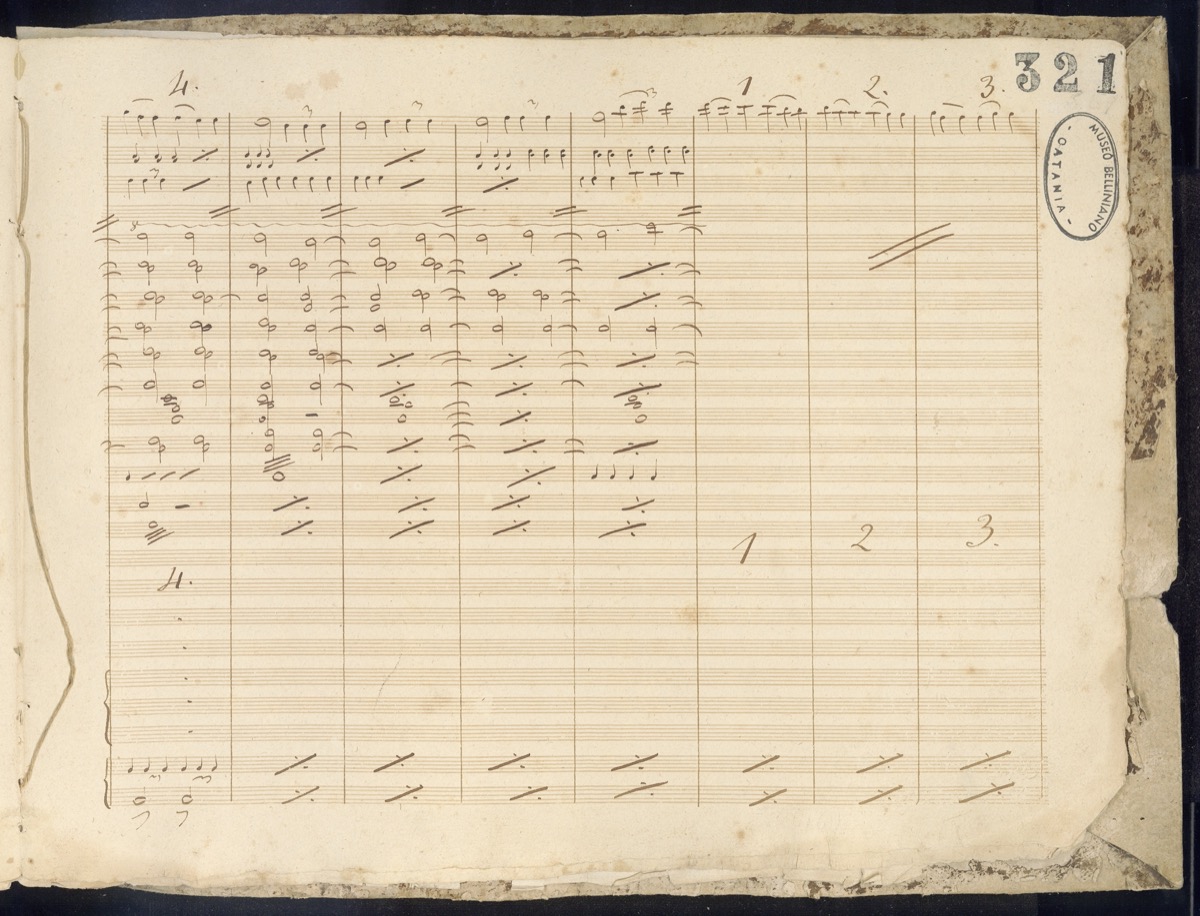 4. 1 2. 3. 321
3 3 3 3
MUSEO BELLINIANO
- CATANIA -
3
1 2 3.
4.
3 3